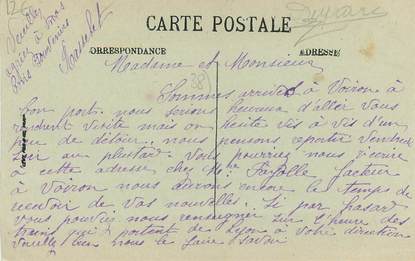 126
Duparc
Veuillez
agréez à tous
bons souvenirs
CARTE POSTALE
CORRESPONDANCE
ADRESSE
38
Madame et Monsieur
Sommes arrivés à Voiron à
bon port. nous serions heureux d'aller vous
rendant visite mais on hésite vis à vis d'un
peu de
nous pensons repartir vendredi
ou au plus tard. Vous pourrez nous écrire
à cette adresse chez Mr facteur
à Voiron nous aurons encore le temps de
recevoir de vos nouvelles. Si par hasard
vous pouviez nous renseigner sur l'heure des
trains qui partent de Lyon à votre direction
veuillez bien nous le faire savoir